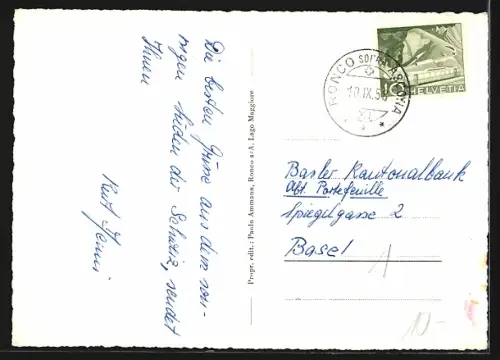 Die besten Grüsse aus dem son-
nigen Süden der Schweiz, sendet
Ihnen
Kurt
Propr. edit.: Paolo Ammann, Ronco s/A. Lago Maggiore
RONCO SOPRA ASCONA
10.IX.5
10
HELVETIA
Basler Kantonalbank
Abt. Portefeuille
Spiegelgasse 2
Basel